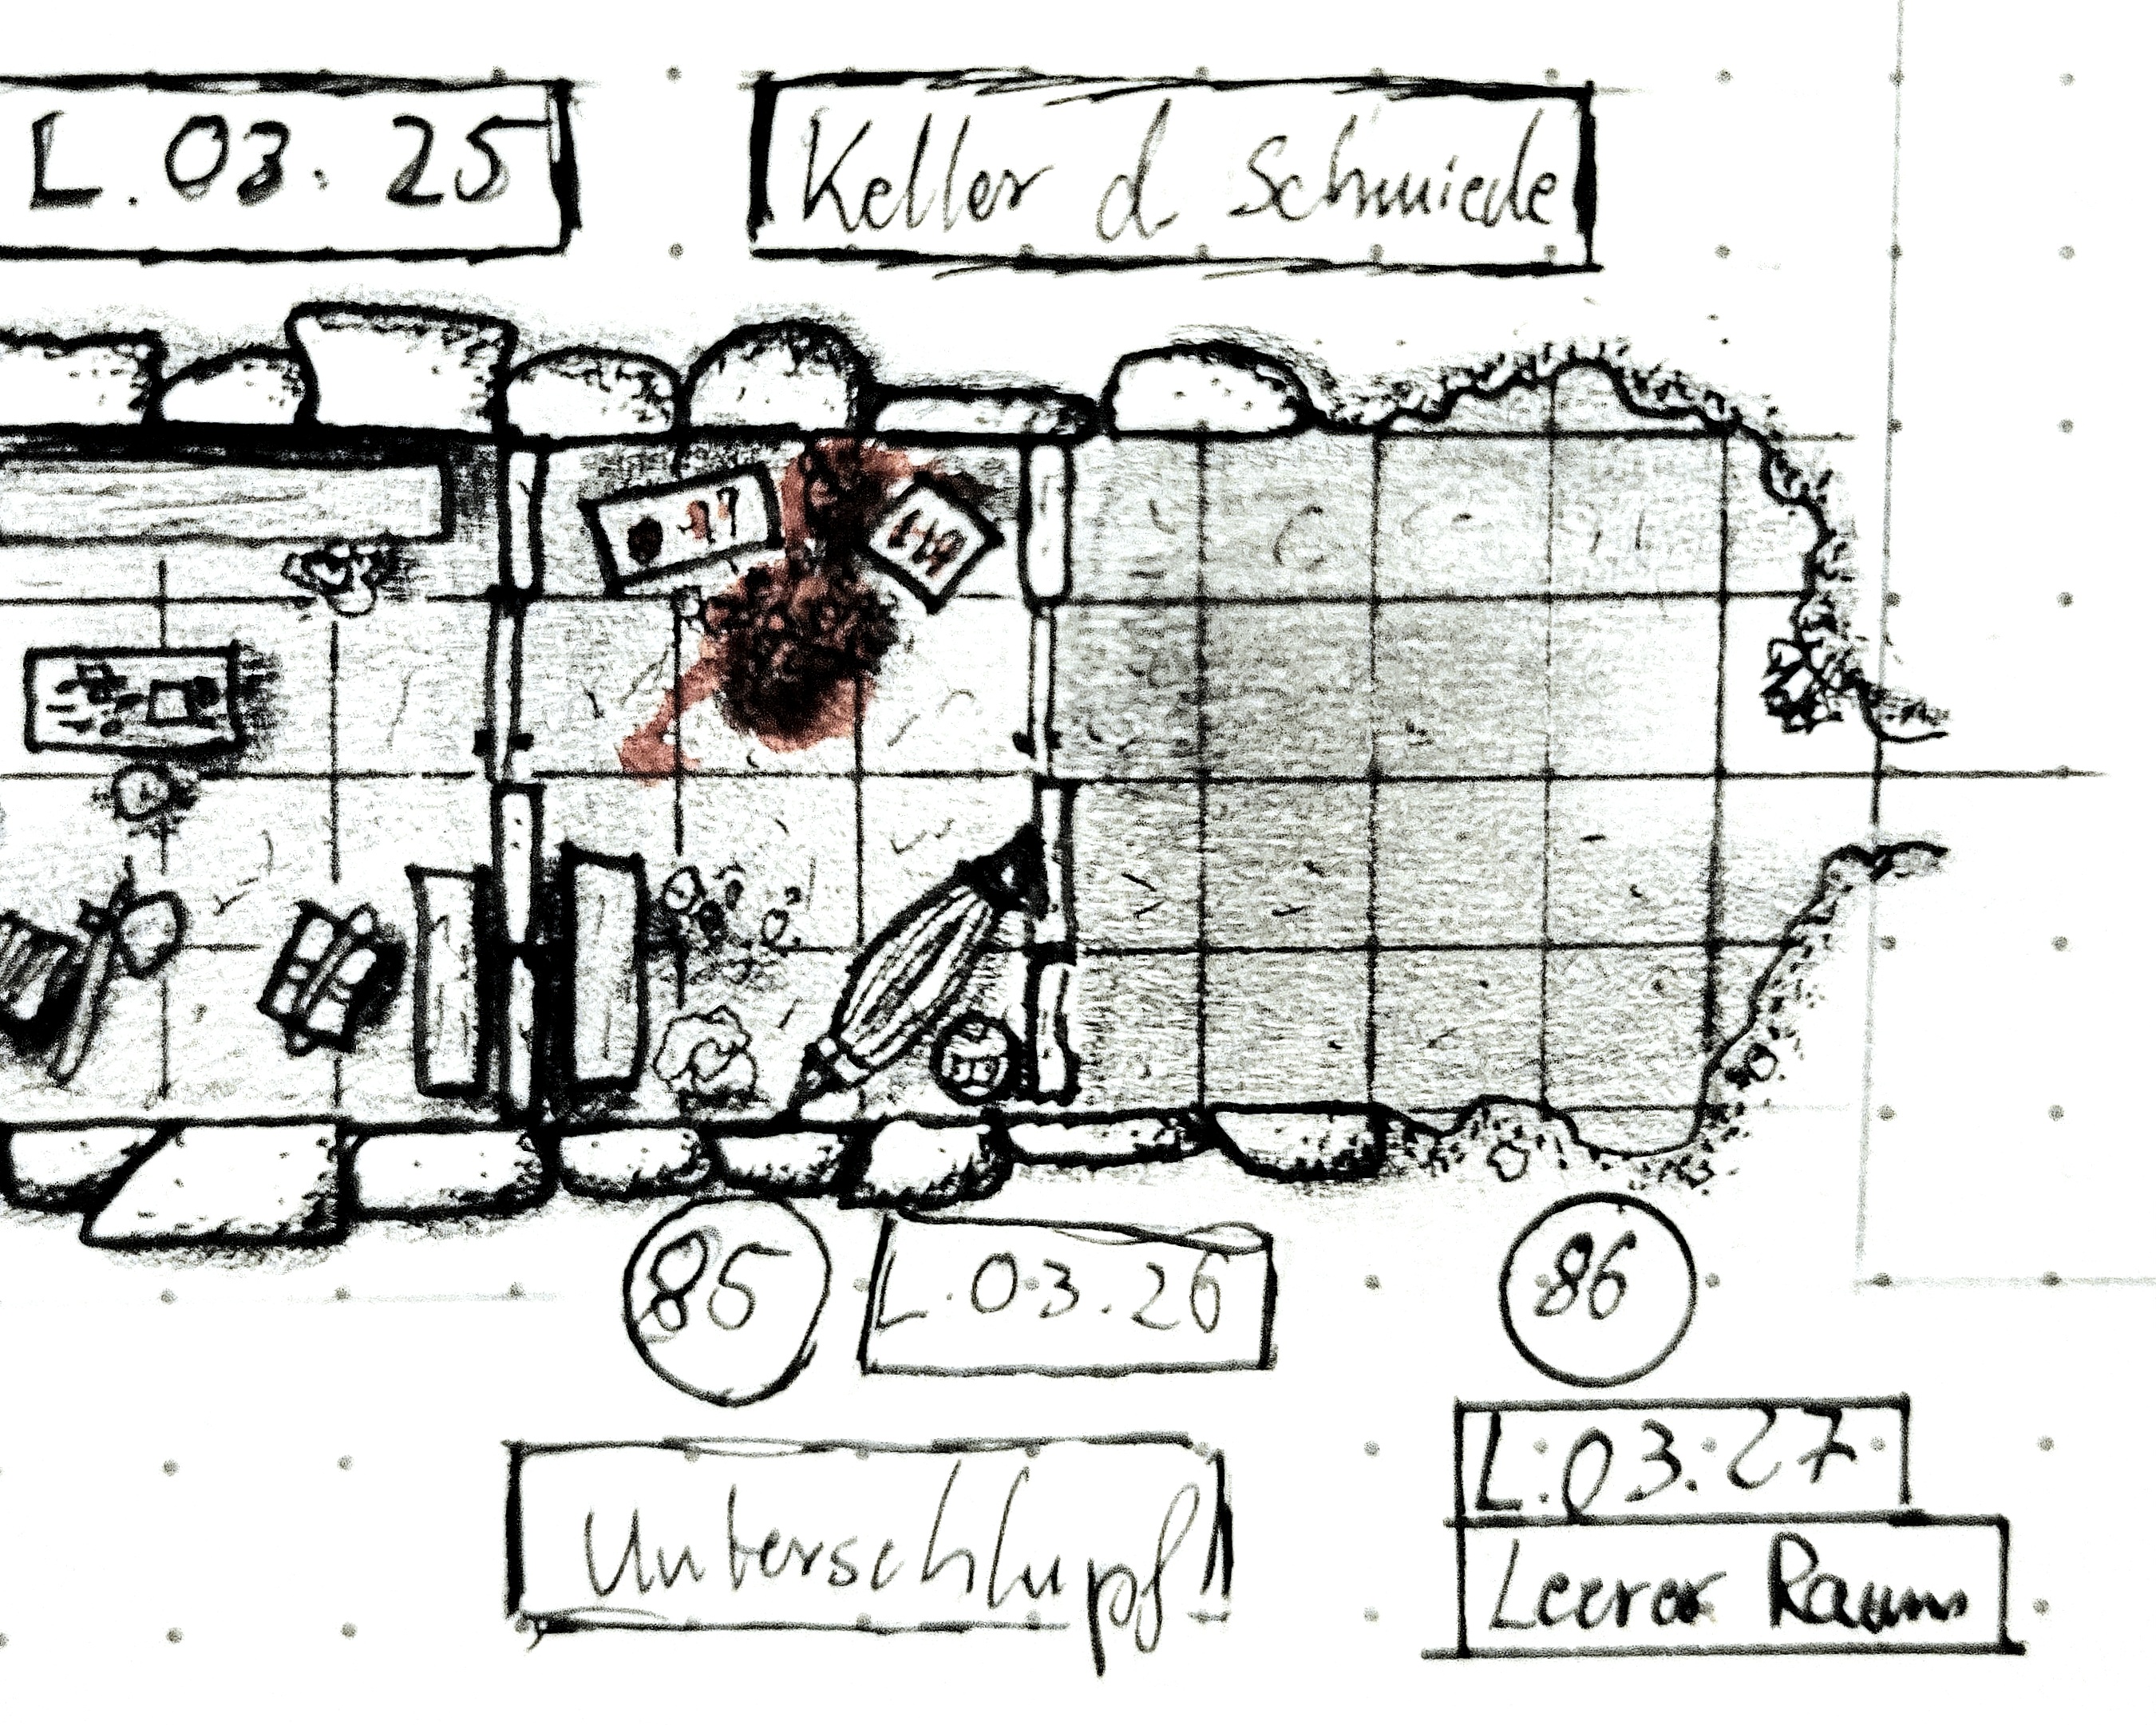 L.03.25
Keller d Schmiede
85
L.03.26
86
Unterschlupf!
L.03.27
Leerer Raum